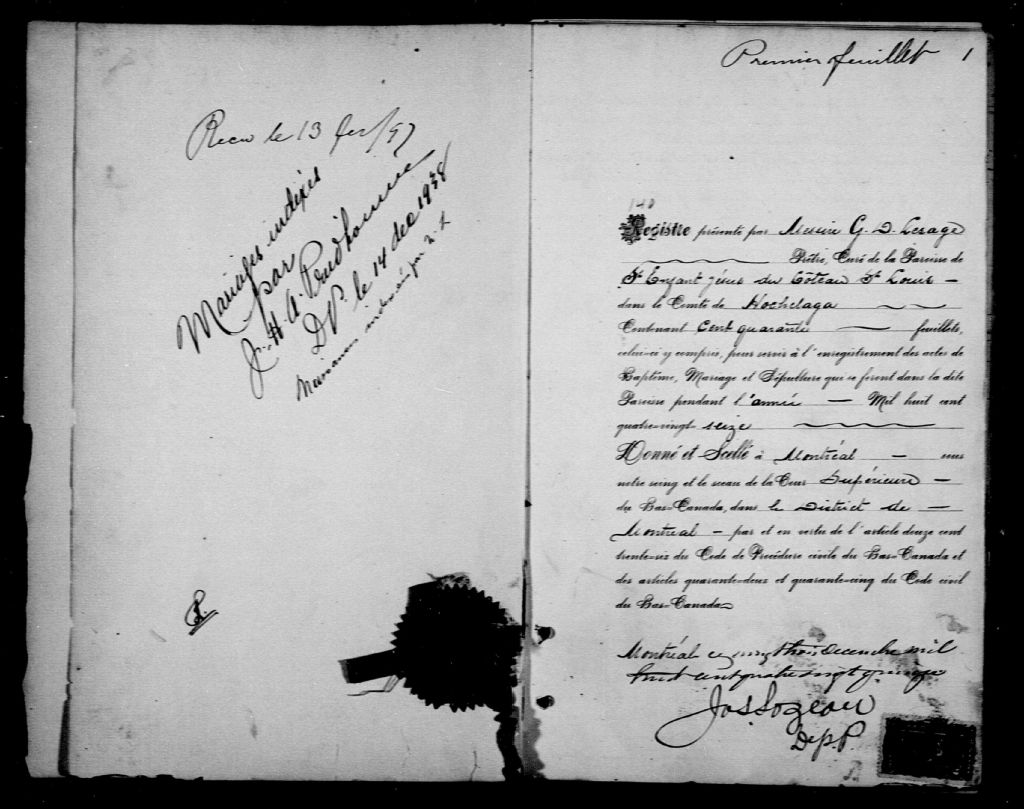 Recu le 13 fev/97
Mariages indexés
par
J. H. A. Prudhomme
DP. le 14 dec 1938
Premier feuillet 1
140
Registre présenté par Messire G. D. Lesage
Prêtre, Curé de la Paroisse de
St Enfant Jésus du Côteau St Louis —
dans le Comté de Hochelaga
Contenant Cent quarante — feuillets,
celui-ci y compris, pour servir à l'enregistrement des actes de
Baptême, Mariage et Sépulture qui se feront dans la dite
Paroisse pendant l'année — Mil huit cent
quatre-vingt-seize
Donné et Scellé à Montréal — sous
notre seing et le sceau de la Cour Supérieure —
du Bas-Canada, dans le District de —
Montreal — par et en vertu de l'article douze cent
trente-six du Code de Procédure civile du Bas-Canada et
des articles quarante-deux et quarante-cinq du Code civil
du Bas-Canada
Montréal ce vingt trois decembre mil
huit cent quatre vingt quinze
Dep. P.